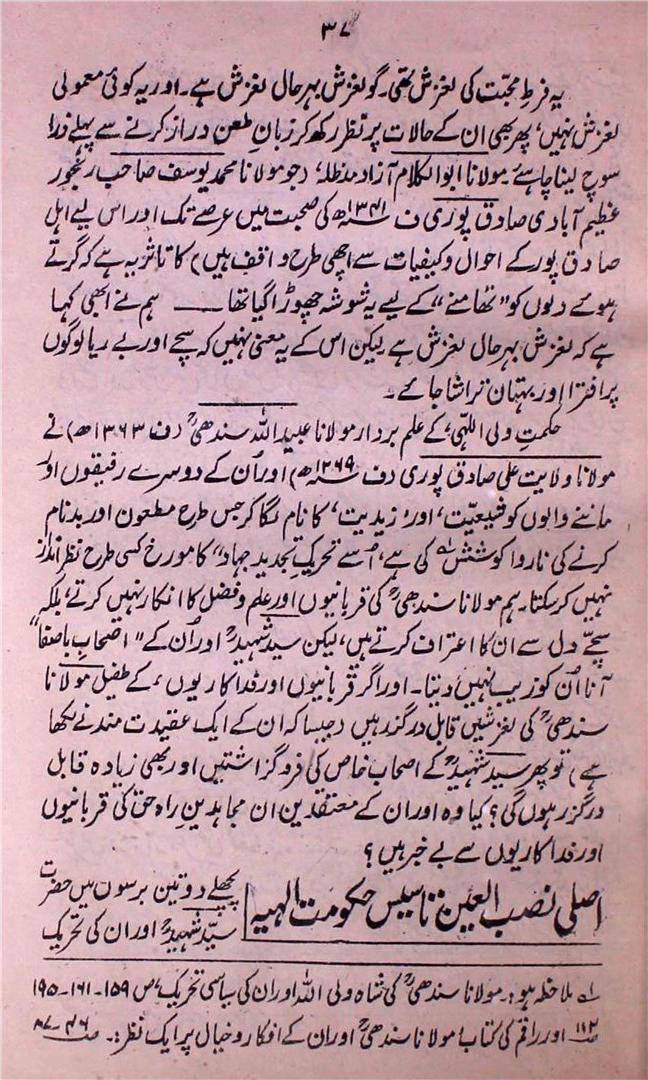 ۳۷
یہ فرطِ محبت کی لغزش تھی۔ گو لغزش بہرحال لغزش ہے۔ اور یہ کوئی معمولی
لغزش نہیں، پھر بھی ان کے حالات پر نظر رکھ کر زبانِ طعن دراز کرنے سے پہلے ذرا
سوچ لینا چاہئے۔ مولانا ابوالکلام آزاد مدظلہٗ، (جو مولانا محمد یوسف صاحب رنجور
عظیم آبادی صادق پوری ف ۱۳۴۱ھ کی صحبت میں عرصے تک اور اس لیے اہلِ
صادق پور کے احوال و کیفیات سے اچھی طرح واقف ہیں) کا تاثر یہ ہے کہ گرتے
ہوئے دلوں کو "تھامنے" کے لیے یہ شوشہ چھوڑا گیا تھا —— ہم نے ابھی کہا
ہے کہ لغزش بہرحال لغزش ہے لیکن اس کے یہ معنی نہیں کہ سچے اور بے ریا لوگوں
پر افترا اور بہتان تراشا جائے۔
حکمتِ ولی اللٰہی، کے علم بردار مولانا عبیداللہ سندھیؒ (ف ۱۳۶۳ھ) نے
مولانا ولایت علی صادق پوری (ف ۱۲۶۹ھ) اور اُن کے دوسرے رفیقوں اور
ماننے والوں کو شیعیّت، اور 'زیدیت' کا نام لگا کر جس طرح مطعون اور بدنام
کرنے کی ناروا کوشش ؎۱ کی ہے، اُسے تحریکِ تجدیدِ جہاد" کا مورخ کسی طرح نظرانداز
نہیں کر سکتا۔ ہم مولانا سندھیؒ کی قربانیوں اور علم و فضل کا انکار نہیں کرتے، بلکہ
سچے دل سے ان کا اعتراف کرتے ہیں، لیکن سید شہیدؒ اور اُن کے "اصحابِ باصفا"
آنا اُن کو زیب نہیں دیتا۔ اور اگر قربانیوں اور فداکاریوں، کے طفیل مولانا
سندھیؒ کی لغزشیں قابلِ درگزر ہیں (جیسا کہ ان کے ایک عقیدت مند نے لکھا
ہے) تو پھر سید شہیدؒ کے اصحابِ خاص کی فروگزاشتیں اور بھی زیادہ قابل
درگزر ہوں گی؟ کیا وہ اور ان کے معتقدین ان مجاہدینِ راہِ حق کی قربانیوں
اور فداکاریوں سے بے خبر ہیں؟
اصلی نصب العین: تاسیس حکومت الہیہ
پچھلے دو تین برسوں میں حضرت
سیّد شہیدؒ اور ان کی تحریک
؎۱ ملاحظہ ہو:۔ مولانا سندھیؒ کی شاہ ولی اللہ اور ان کی سیاسی تحریک، ص ۱۵۹-۱۶۱-۱۹۵
اور راقم کی کتاب! مولانا سندھیؒ اور ان کے افکار و خیال پر ایک نظر:۔ ص ۴۶-۸۷